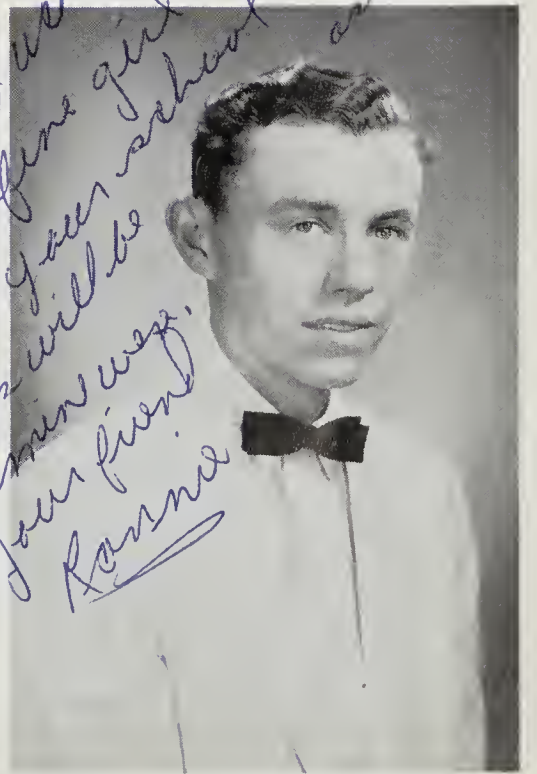 fine girl
your school
will be
mine was.
your friend
Ronnie